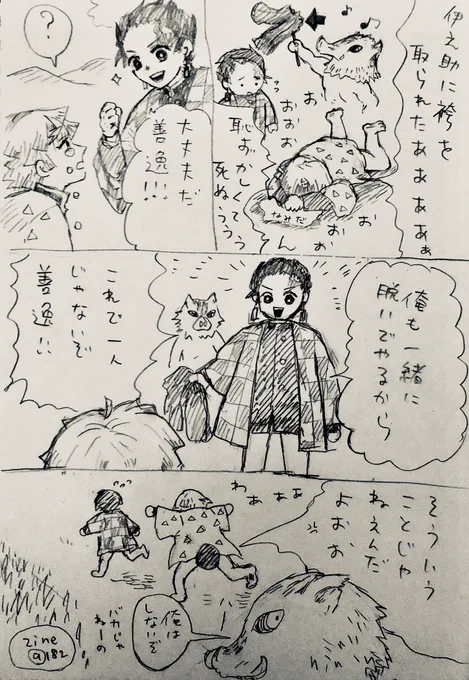 伊之助に袴を
取られたああああぁ
おおおお
おぉぉん
恥ずかしくて
死ぬううう
なみだ
大丈夫だ
善逸!!!
?
俺も一緒に
脱いでやるから
これで一人
じゃないぞ
善逸!!
そういう
ことじゃ
ねぇんだ
よおぉ
わぁぁぁ
俺は
しないぞ
バカじゃ
ねーの
zine
@182